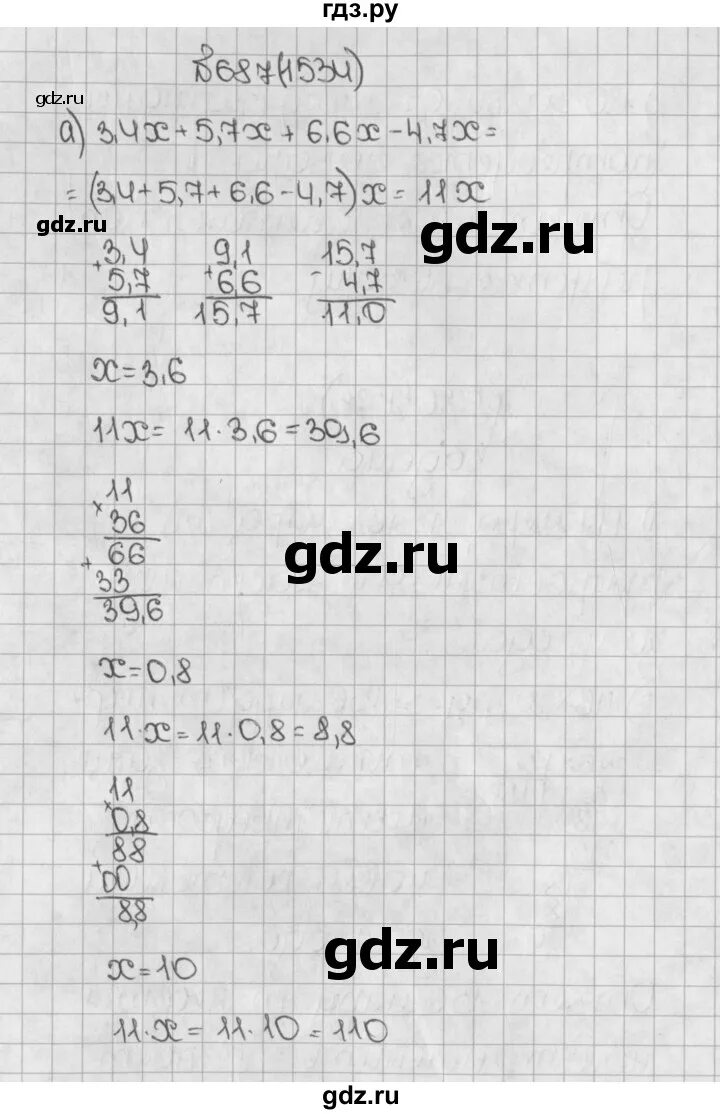 гдз.ру
№687(1534)
gdz.ru
а) 3,4x + 5,7x + 6,6x - 4,7x =
= (3,4 + 5,7 + 6,6 - 4,7)x = 11x
gdz.ru
gdz.ru
3,4 9,1 15,7
+ 5,7 + 6,6 - 4,7
9,1 15,7 11,0
x = 3,6
11x = 11 · 3,6 = 39,6
11
× 36
gdz.ru
66
+ 33
39,6
x = 0,8
11 · x = 11 · 0,8 = 8,8
11
× 0,8
88
+ 00
8,8
gdz.ru
x = 10
11 · x = 11 · 10 = 110
gdz.ru